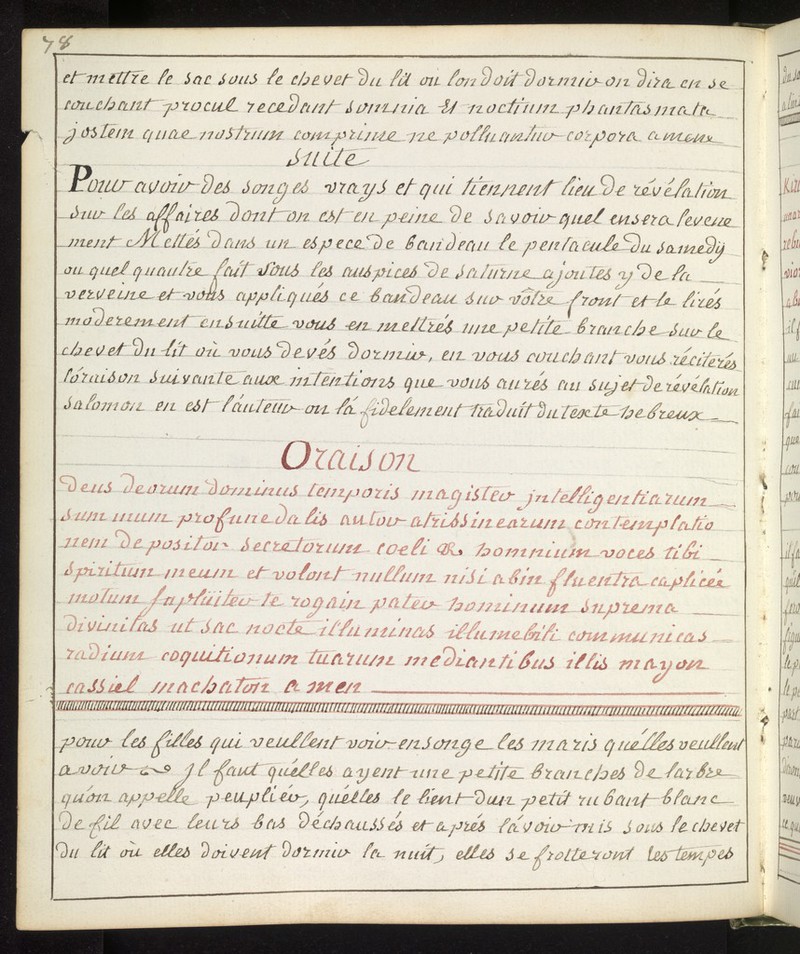 78
et mettre le sac sous le chevet du lit où l'on doit dormir on dira en se
couchant procul recedant somnia Et noctium phantasmata
jostem quae nostrum comprime ne polluantur corpora amen
Suite
Pour avoir des songes vrays et qui tiennent lieu de révélation
sur les affaires dont on est en peine de savoir quel en sera l'evene
ment Mettés dans un espece de bandeau le pentacule du samedy
ou quel quautre fait sous les auspices de saturne ajoutes y de la
verveine et vous appliqués ce bandeau sur vôtre front et le lirés
moderement ensuitte vous en mettrés une petite branche sur le
chevet du lit où vous devés dormir, en vous couchant vous réciterés
l'óraison suivante aux intentions que vous aurés au sujet de révélation
salomon en est l'áuteur on lá fidelement traduit du texte hebreux
Oraison
Deus deorum dominus temporis magister jntelligentiarum
summum profune dalis autor atrissinearum contemplatio
nem depositor secretorum coeli & homnium voces tibi
spiritum meum et volont nullum nisi abin fluentra caplicée
motum supluiter te rogain pater hominum suprema
divinitas ut sac nocte illuminas illumebili communicas
radium coquitionum tuarum mediantibus illis mayon
cassiel machaton amen
pour les filles qui veullent voir en songe les maris quélles veullent
avoir jl faut quélles ayent une petite branches de larbre
quon appelle peupliér, quélles le lient d'un petit rubant blanc
de fil avec leurs bas déchaussés et aprés l'ávoir mis sous le chevet
du lit où elles doivent dormir la nuit, elles se frotteront les tempes